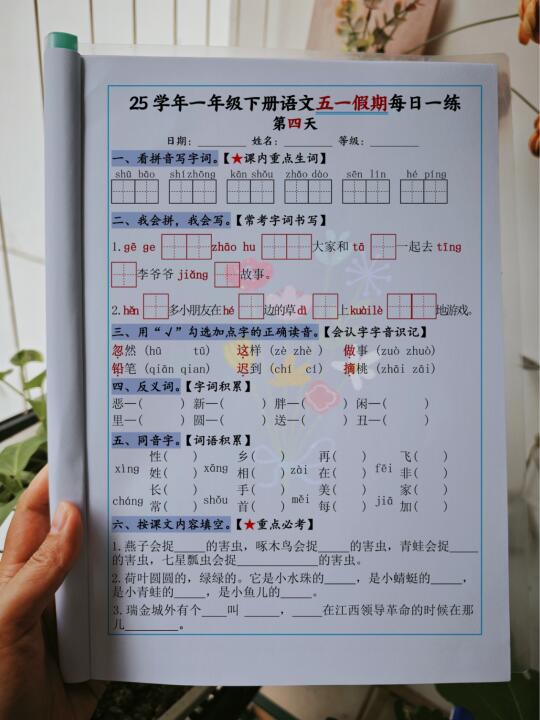 25学年一年级下册语文五一假期每日一练
第四天
日期：________ 姓名：________ 等级：________
一、看拼音写字词。【★课内重点生词】
shū bāo shízhōng kān shǒu zhāo dào sēn lín hé píng
二、我会拼，我会写。【常考字词书写】
1.gē ge zhāo hu 大家和 tā 一起去 tīng
李爷爷 jiǎng 故事。
2.hěn 多小朋友在 hé 边的草 dì 上 kuàilè 地游戏。
三、用“√”勾选加点字的正确读音。【会认字字音识记】
忽然（hū tū） 这样（zè zhè ） 做事（zuò zhuò）
铅笔（qiān qian） 迟到（chí cí） 摘桃（zhāi zāi）
四、反义词。【字词积累】
恶—( ) 新—( ) 胖—( ) 闲—( )
里—( ) 圆—( ) 送—( ) 丑—( )
五、同音字。【词语积累】
性( ) 乡( ) 再( ) 飞( )
xìng xāng zài fēi
姓( ) 相( ) 在( ) 非( )
长( ) 手( ) 美( ) 家( )
cháng shǒu měi jiā
常( ) 首( ) 每( ) 加( )
六、按课文内容填空。【★重点必考】
1.燕子会捉_____的害虫，啄木鸟会捉_____的害虫，青蛙会捉____
的害虫，七星瓢虫会捉_____________的害虫。
2.荷叶圆圆的，绿绿的。它是小水珠的_____，是小蜻蜓的_____，
是小青蛙的_____，是小鱼儿的_____。
3.瑞金城外有个____叫______，_____在江西领导革命的时候在那
儿_________。